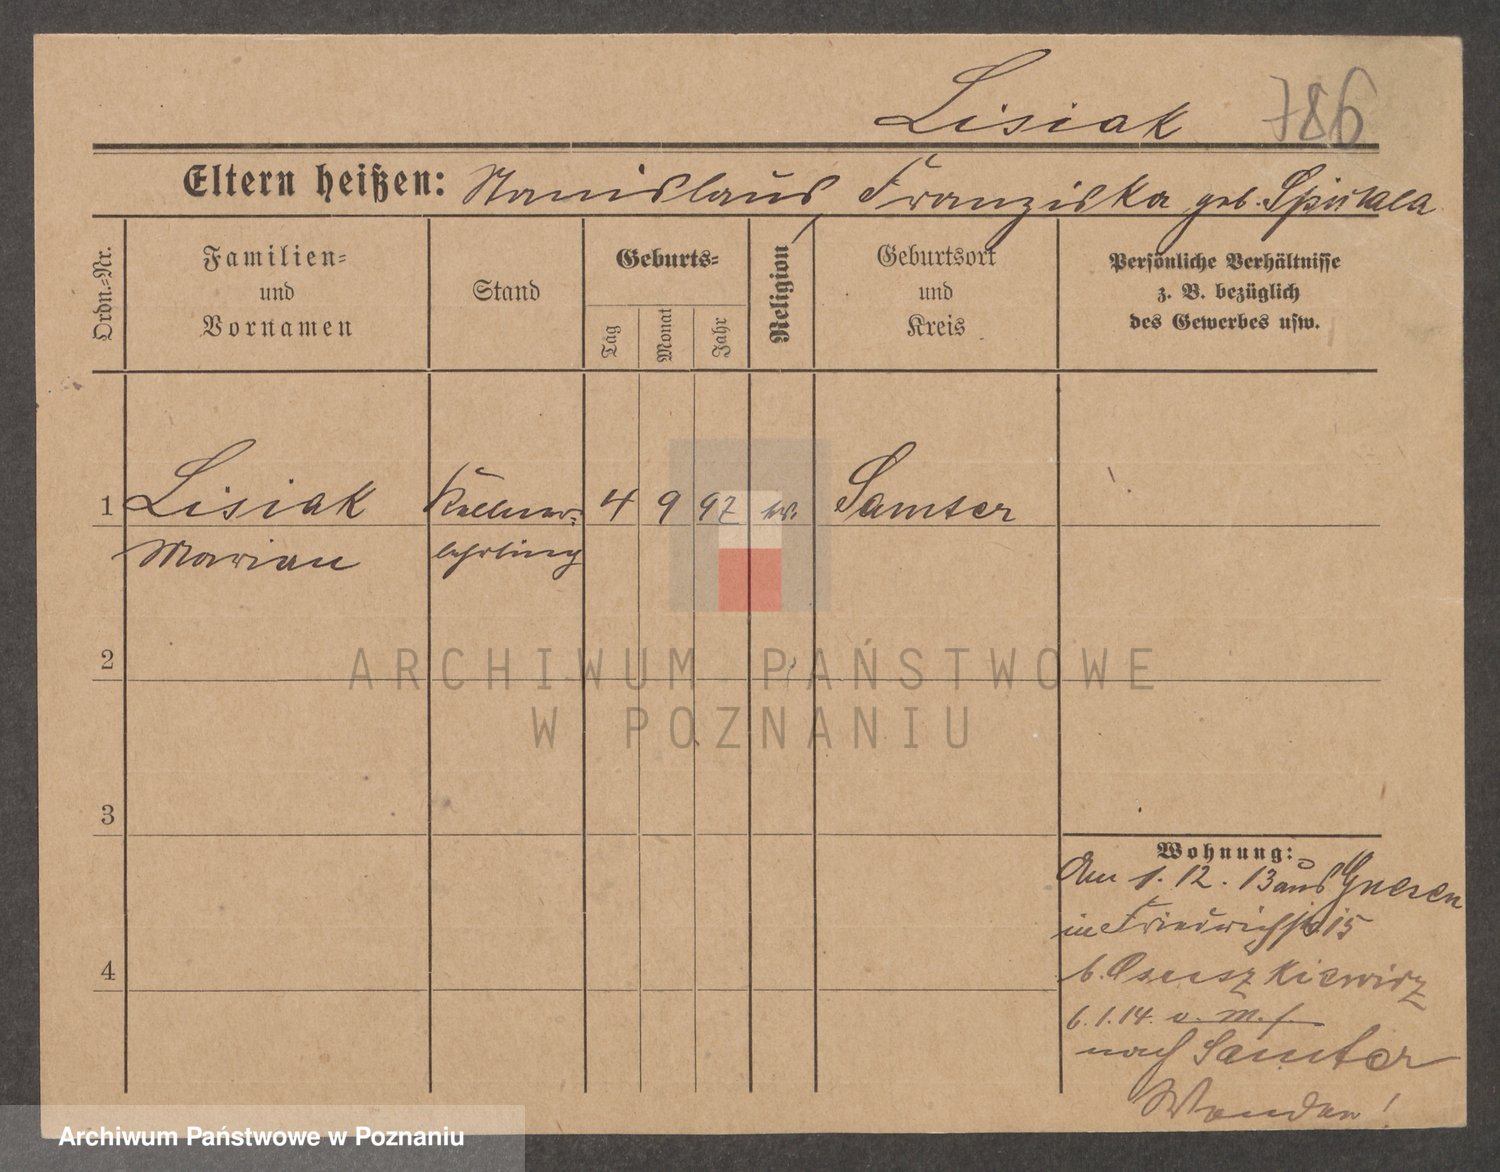 Lisiak 786
Eltern heißen: Stanislaus, Franziska geb. Spiukala
Ordn.-Nr.
Familien-
und
Vornamen
Stand
Geburts-
Tag
Monat
Jahr
Religion
Geburtsort
und
Kreis
Persönliche Verhältnisse
z. B. bezüglich
des Gewerbes usw.
1 Lisiak Kellner- 4 9 97 kr. Samter
Marian lehrling
2
3
4
Wohnung:
Am 1. 12. 13 aus Gnesen
in Friedrichstr 15
b.
6.1.14. v. M. f.
nach Samter
Wenden!
ARCHIWUM PAŃSTWOWE
W POZNANIU
Archiwum Państwowe w Poznaniu